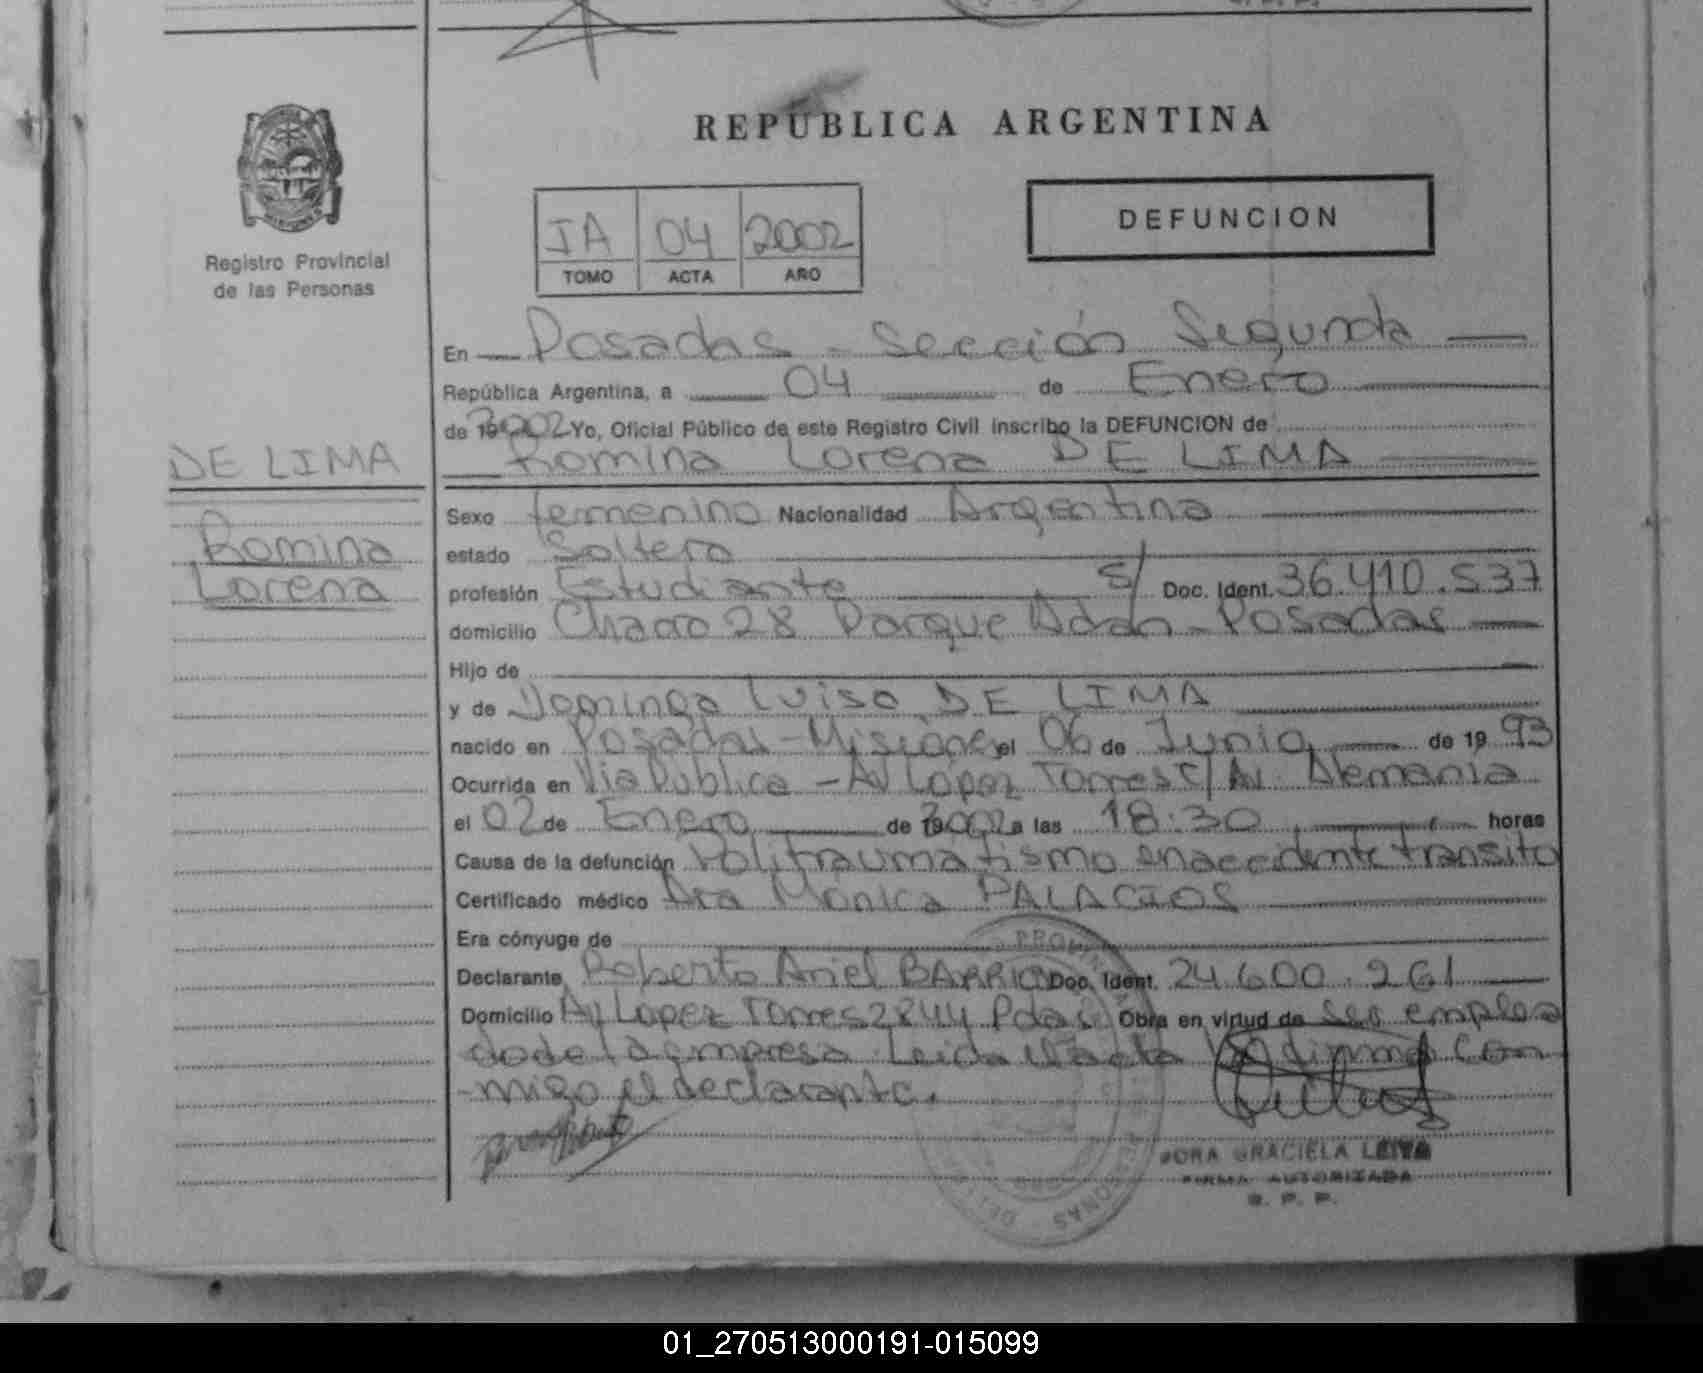 REPUBLICA ARGENTINA
DEFUNCION
IA 04 2002
TOMO ACTA AÑO
Registro Provincial
de las Personas
En Posadas - Sección Segunda
República Argentina, a 04 de Enero
de 2002 Yo, Oficial Público de este Registro Civil inscribo la DEFUNCION de
DE LIMA
Romina Lorena DE LIMA
Romina
Lorena
Sexo femenino Nacionalidad Argentina
estado Soltera
profesión Estudiante s/ Doc. Ident. 36.410.537
domicilio Chacra 28 Parque Adam - Posadas
Hijo de
y de Dominga Luisa DE LIMA
nacido en Posadas - Misiones el 06 de Junio de 1993
Ocurrida en Via Publica - Av López Torres c/ Av. Alemania
el 02 de Enero de 2002 a las 18:30 horas
Causa de la defunción Politraumatismo en accidente transito
Certificado médico Dra Mónica PALACIOS
Era cónyuge de
Declarante Roberto Ariel BARRIO Doc. Ident. 24.600.261
Domicilio Av Lopez Torres 2844 Pdas Obra en virtud de ser emplea
do de la empresa. Leida el acta la firma con
migo el declarante.
DORA GRACIELA LEIVA
FIRMA AUTORIZADA
R. P. P.
01_270513000191-015099